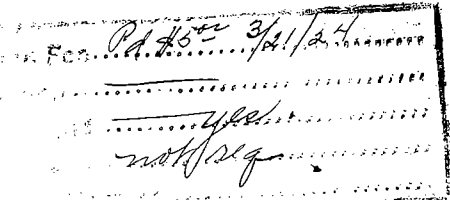 Fee Pd $5.00 3/21/24
yes
not req